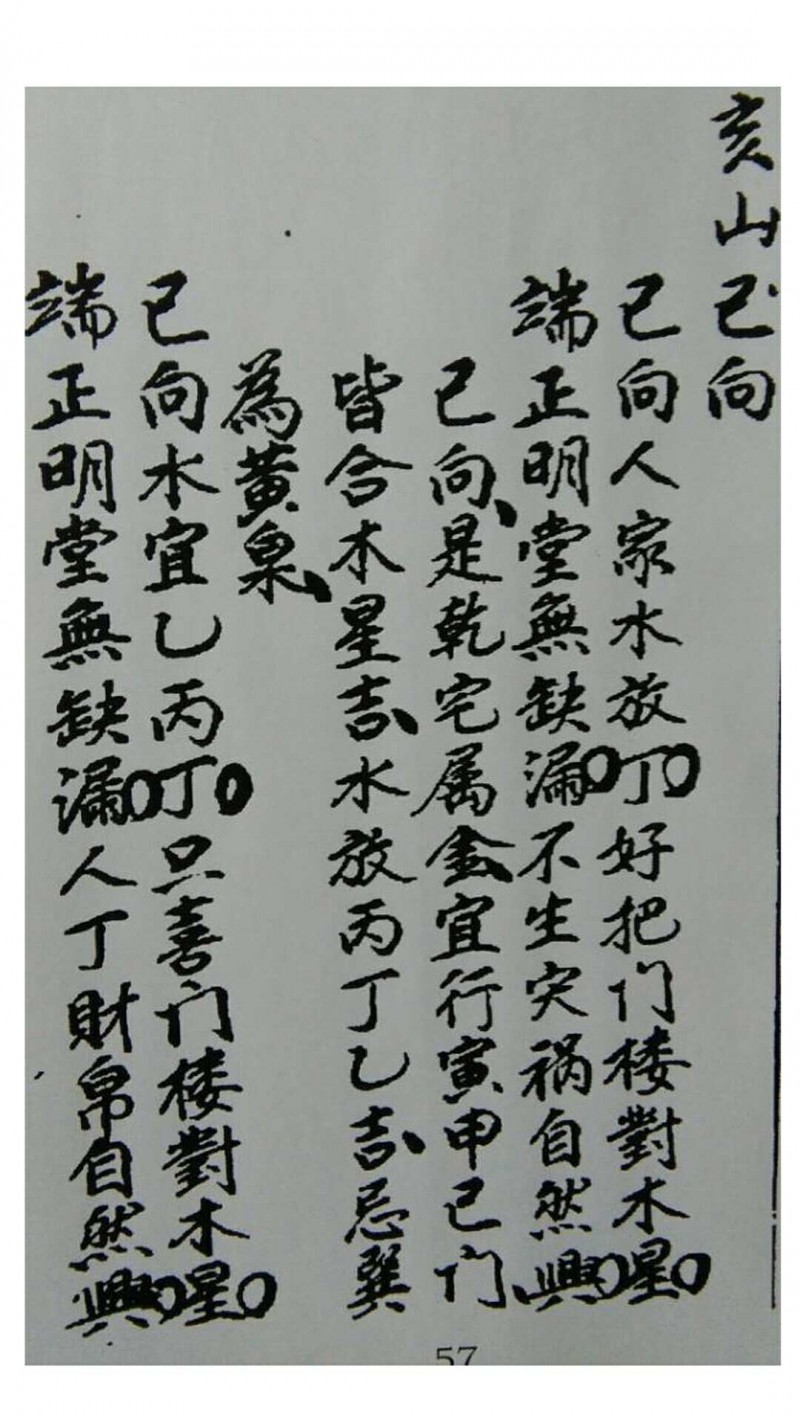 亥山巳向
巳向人家水放丁好把门楼對木星
端正明堂無缺漏不生灾祸自然興
巳向是乾宅属金宜行寅申巳门
皆合木星吉水放丙丁乙吉忌巽
為黄泉
巳向水宜乙丙丁只喜门楼對木星
端正明堂無缺漏人丁財帛自然興
57